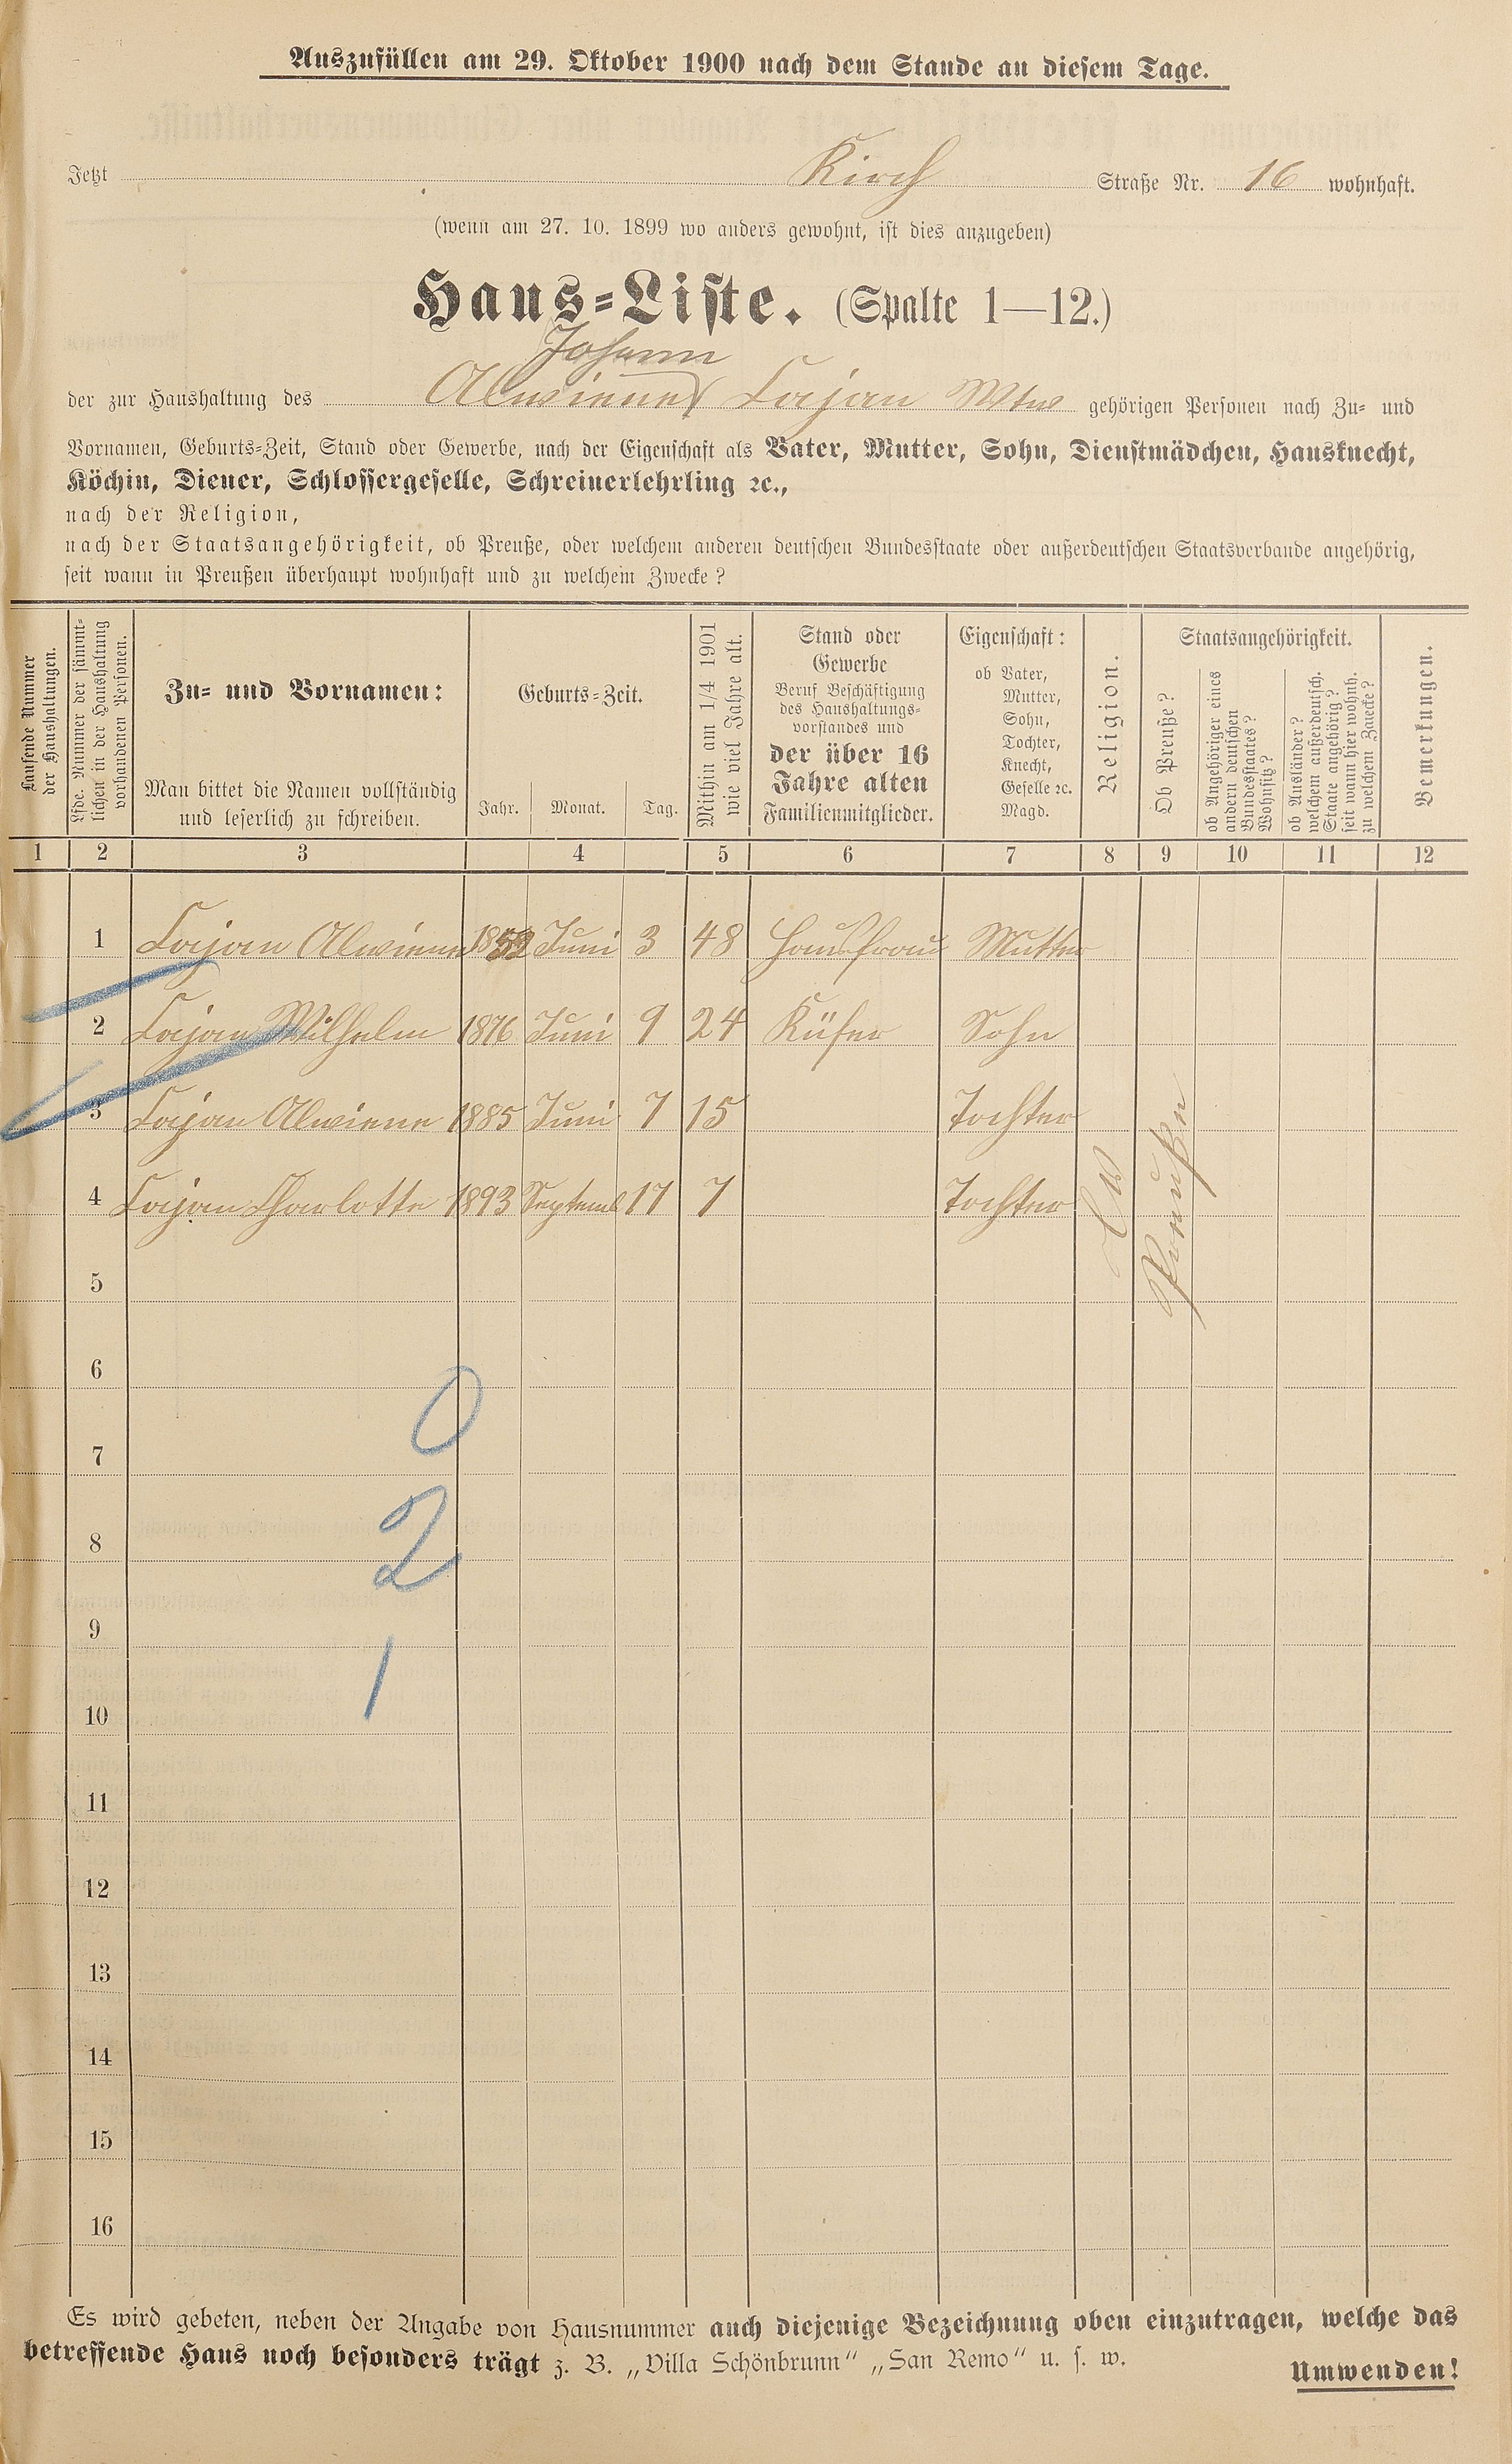 Auszufüllen am 29. Oktober 1900 nach dem Stande an diesem Tage.
Jetzt Kirch Straße Nr. 16 wohnhaft.
(wenn am 27. 10. 1899 wo anders gewohnt, ist dies anzugeben)
Haus-Liste. (Spalte 1—12.)
Johann
der zur Haushaltung des Alwiene Cajan Wtw gehörigen Personen nach Zu- und
Vornamen, Geburts-Zeit, Stand oder Gewerbe, nach der Eigenschaft als Vater, Mutter, Sohn, Dienstmädchen, Hausknecht,
Köchin, Diener, Schlossergeselle, Schreinerlehrling ꝛc.,
nach der Religion,
nach der Staatsangehörigkeit, ob Preuße, oder welchem anderen deutschen Bundesstaate oder außerdeutschen Staatsverbande angehörig,
seit wann in Preußen überhaupt wohnhaft und zu welchem Zwecke?
Laufende Nummer
der Haushaltungen.
Lfde. Nummer der sämmt-
lichen in der Haushaltung
vorhandenen Personen.
Zu- und Vornamen:
Man bittet die Namen vollständig
und leserlich zu schreiben.
Geburts-Zeit.
Jahr. Monat. Tag.
Mithin am 1/4 1901
wie viel Jahre alt.
Stand oder
Gewerbe
Beruf Beschäftigung
des Haushaltungs-
vorstandes und
der über 16
Jahre alten
Familienmitglieder.
Eigenschaft:
ob Vater,
Mutter,
Sohn,
Tochter,
Knecht,
Geselle ꝛc.
Magd.
Religion.
Staatsangehörigkeit.
Ob Preuße?
ob Angehöriger eines
andern deutschen
Bundesstaates?
Wohnsitz?
ob Ausländer?
welchem außerdeutsch.
Staate angehörig?
seit wann hier wohnh.
zu welchem Zwecke?
Bemerkungen.
1 2 3 4 5 6 7 8 9 10 11 12
1 Cajan Alwiene 1852 Juni 3 48 Hausfrau Mutter
2 Cajan Wilhelm 1876 Juni 9 24 Küfer Sohn
3 Cajan Alwiene 1885 Juni 7 15 Tochter
4 Cajan Charlotte 1893 Septemb 17 7 Tochter
Ev
Preußen
5
6
0
7
2
8
9
1
10
11
12
13
14
15
16
Es wird gebeten, neben der Angabe von Hausnummer auch diejenige Bezeichnung oben einzutragen, welche das
betreffende Haus noch besonders trägt z. B. „Villa Schönbrunn“ „San Remo“ u. s. w.
Umwenden!